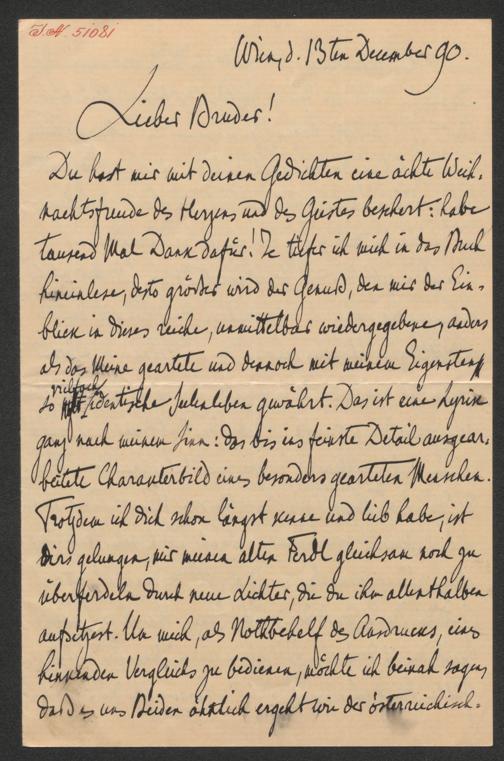 J.N. 51081
Wien, d. 13ten December 90.
Lieber Bruder!
Du hast mir mit deinen Gedichten eine ächte Weih-
nachtsfreude des Herzens und des Geistes beschert: habe
tausend Mal Dank dafür! Je tiefer ich mich in das Buch
hineinlese, desto größer wird der Genuß, den mir der Ein-
blick in dieses reiche, unmittelbar wiedergegebene, anders
als das Meine geartete und dennoch mit meinem Eigensten
so vielfach identische Seelenleben gewährt. Das ist eine Lyrik
ganz nach meinem Sinn: das bis ins feinste Detail ausgear-
beitete Charakterbild eines besonders gearteten Menschen.
Trotzdem ich Dich schon längst kenne und lieb habe, ist
dirs gelungen, mir meinen alten Ferdl gleichsam noch zu
überferdeln durch neue Lichter, die du ihm allenthalben
aufsetzest. Um mich, als Nothbehelf des Ausdrucks, eines
hinkenden Vergleichs zu bedienen, möchte ich beinah sagen,
daß es uns Beiden ähnlich ergeht wie der österreichisch-